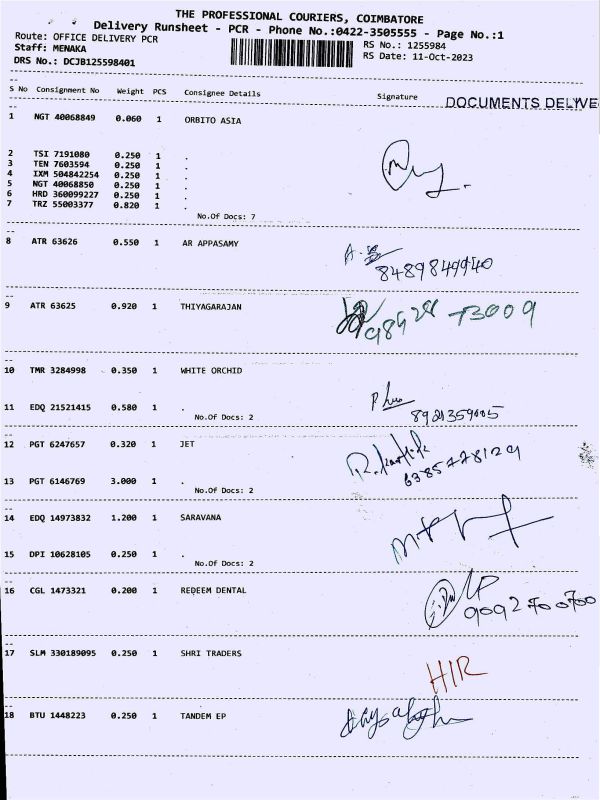 THE PROFESSIONAL COURIERS, COIMBATORE
Delivery Runsheet - PCR - Phone No.:0422-3505555 - Page No.:1
Route: OFFICE DELIVERY PCR
RS No.: 1255984
Staff: MENAKA
RS Date: 11-Oct-2023
DRS No.: DCJB125598401
S No Consignment No Weight PCS Consignee Details Signature
DOCUMENTS DELIVE
1 NGT 40068849 0.060 1 ORBITO ASIA
2 TSI 7191080 0.250 1 .
3 TEN 7603594 0.250 1 .
4 IXM 504842254 0.250 1 .
5 NGT 40068850 0.250 1 .
6 HRD 360099227 0.250 1 .
7 TRZ 55003377 0.820 1 .
No.Of Docs: 7
8 ATR 63626 0.550 1 AR APPASAMY
8489849940
9 ATR 63625 0.920 1 THIYAGARAJAN
73009
10 TMR 3284998 0.350 1 WHITE ORCHID
11 EDQ 21521415 0.580 1 .
No.Of Docs: 2
12 PGT 6247657 0.320 1 JET
13 PGT 6146769 3.000 1 .
No.Of Docs: 2
14 EDQ 14973832 1.200 1 SARAVANA
15 DPI 10628105 0.250 1 .
No.Of Docs: 2
16 CGL 1473321 0.200 1 REDEEM DENTAL
9092700700
17 SLM 330189095 0.250 1 SHRI TRADERS
HIR
18 BTU 1448223 0.250 1 TANDEM EP